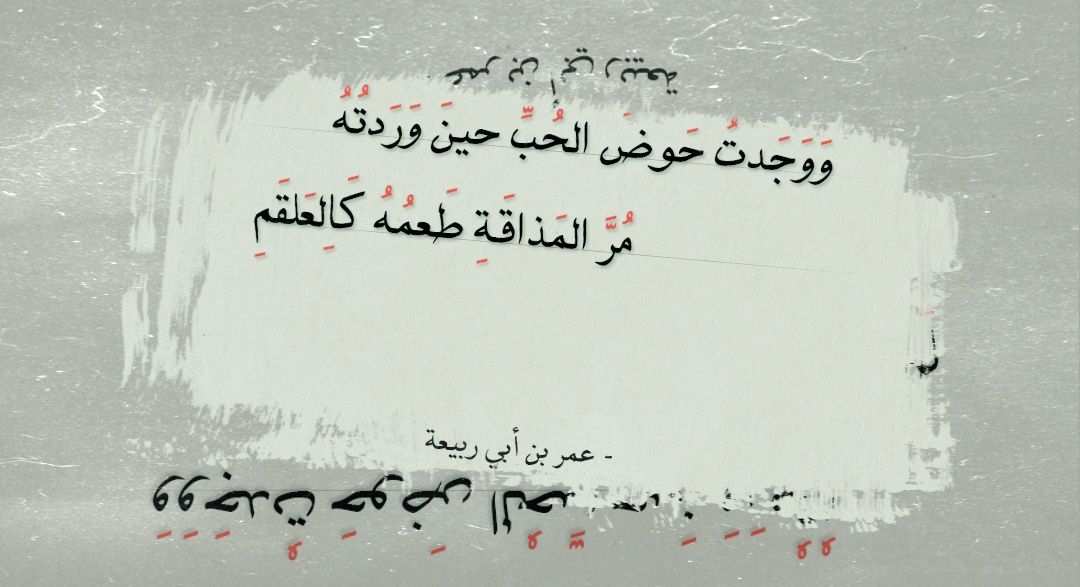 وَوَجَدتُ حَوضَ الحُبِّ حينَ وَرَدتُهُ
مُرَّ المَذاقَةِ طَعمُهُ كَالعَلقَمِ
- عمر بن أبي ربيعة